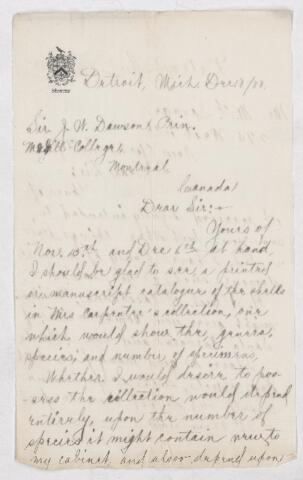 Detroit, Mich. Dec 8/88.
Sir J. W. Dawson, Prin.
McGill College,
Montreal
Canada
Dear Sir:-
Yours of
Nov. 15th and Dec 6th at hand,
I should be glad to see a printed
or manuscript catalogue of the shells
in Mrs Carpenter's collection, one
which would show the genera,
species, and number of specimens,
Whether I would desire to pos-
sess the collection would depend
entirely, upon the number of
species it might contain new to
my cabinet, and also depend upon